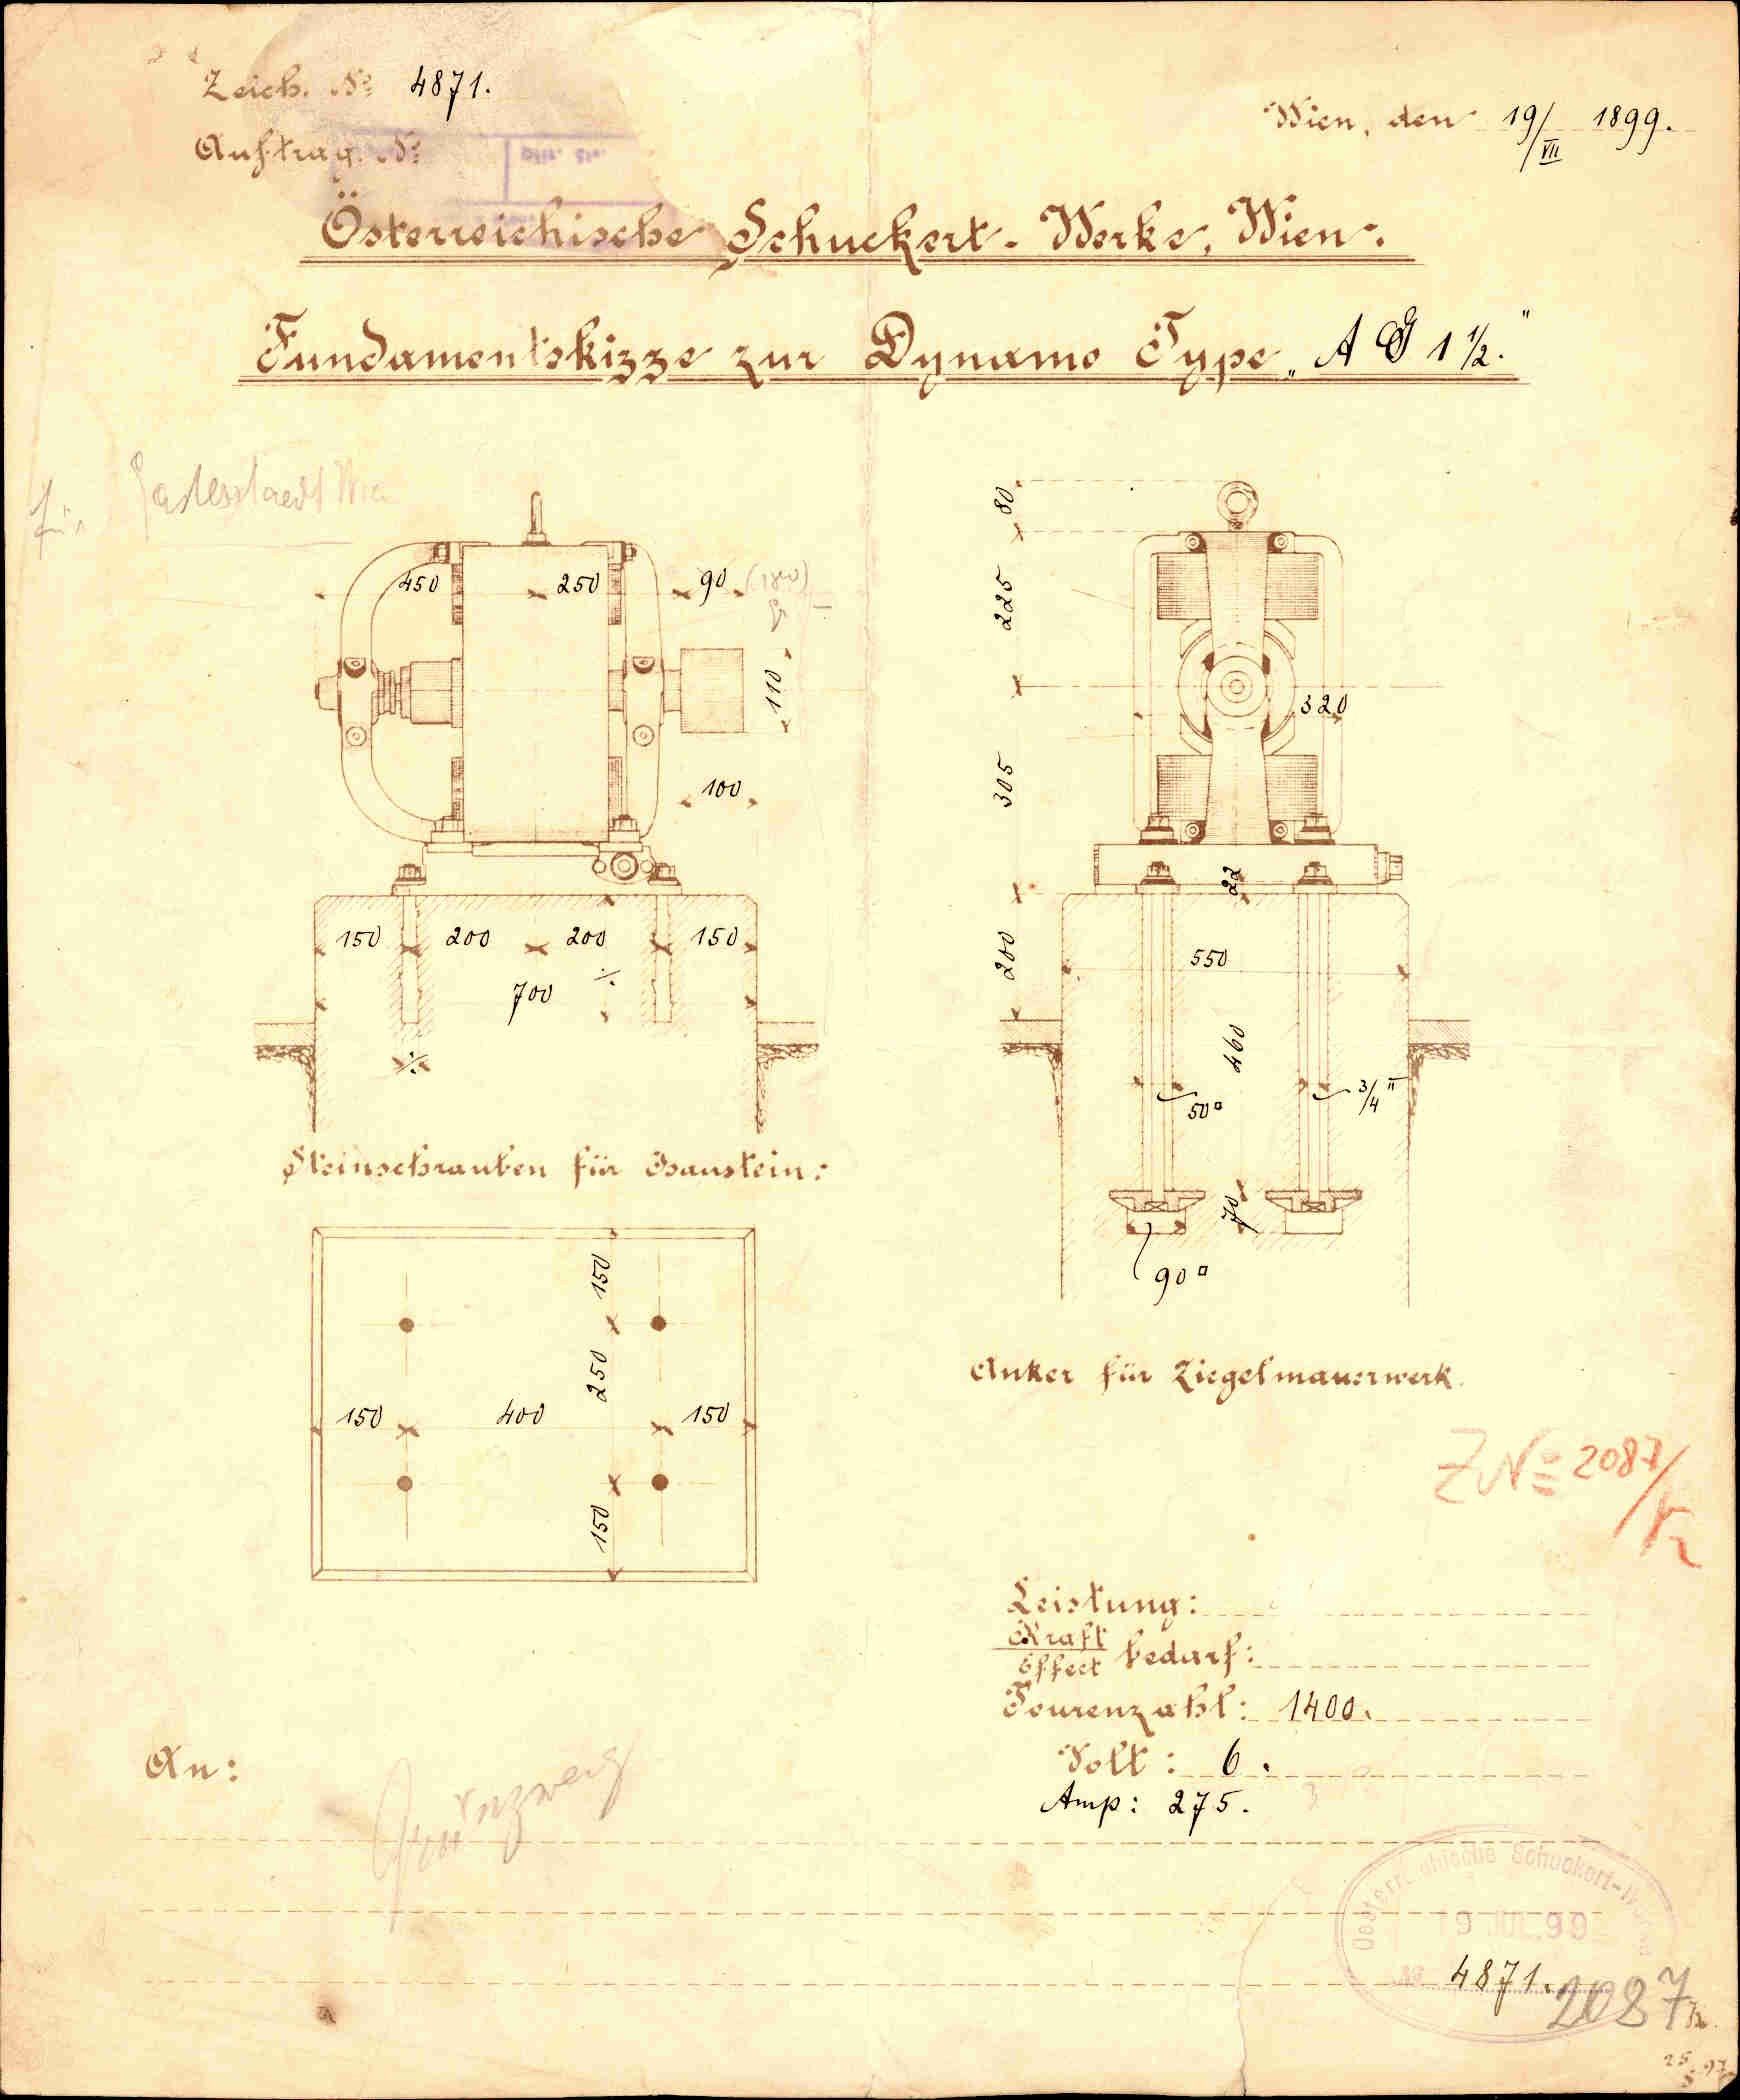 Zeich. № 4871.
Wien, den 19/VII 1899.
Auftrag. №
Österreichische Schuckert-Werke, Wien.
Fundamentskizze zur Dynamo Type „A G 1 1/2."
für
80
450
250
90
225
110
320
305
100
22
150
200
200
150
200
550
700
460
50□
3/4"
Steinschrauben für Haustein:
70
90□
150
250
Anker für Ziegelmauerwerk.
150
400
150
Z№ 2087/
150
Leistung:
Kraft
Effect bedarf:
Tourenzahl: 1400.
An:
Volt: 6.
Amp: 275.
Oesterreichische Schuckert-Werke
19 JUL. 99
№ 4871.
2087